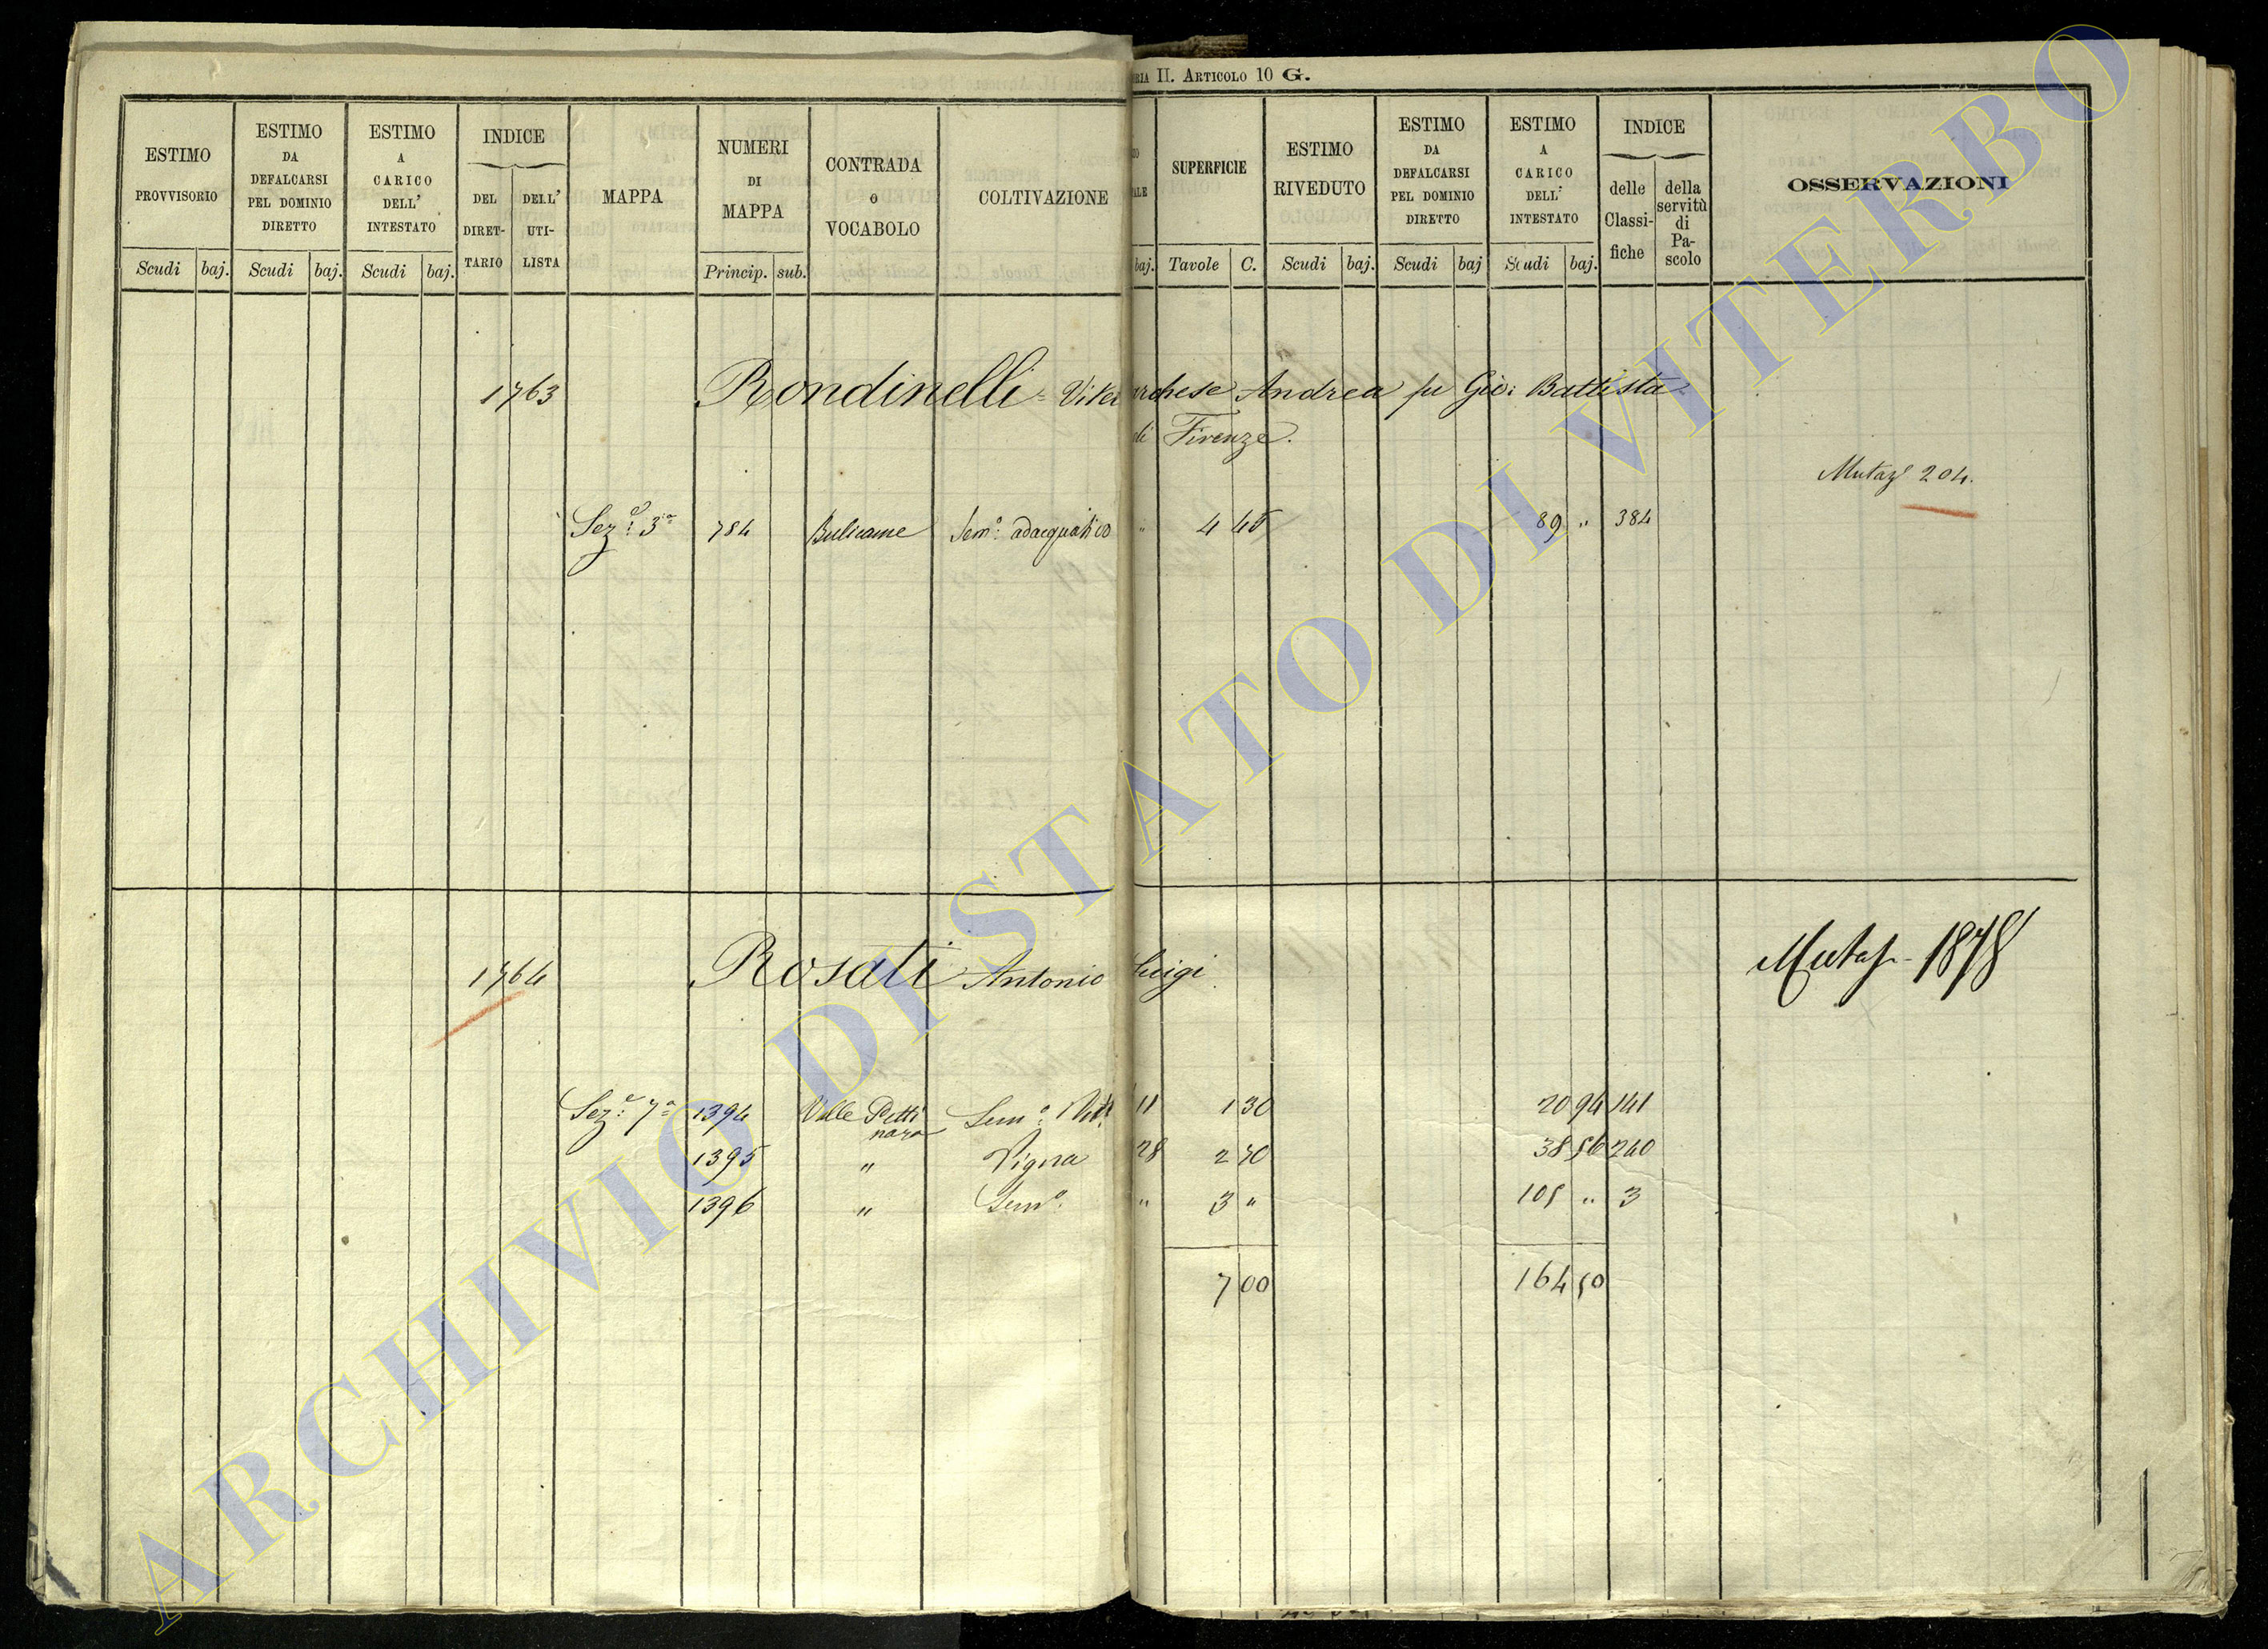 II. ARTICOLO 10 G.
ESTIMO PROVVISORIO
ESTIMO DA DEFALCARSI PEL DOMINIO DIRETTO
ESTIMO A CARICO DELL' INTESTATO
INDICE
DEL DIRET-TARIO
DELL' UTI-LISTA
MAPPA
NUMERI DI MAPPA
CONTRADA o VOCABOLO
COLTIVAZIONE
SUPERFICIE
ESTIMO RIVEDUTO
ESTIMO DA DEFALCARSI PEL DOMINIO DIRETTO
ESTIMO A CARICO DELL' INTESTATO
INDICE
delle Classi-fiche
della servitù di Pa-scolo
OSSERVAZIONI
Scudi baj. Scudi baj. Scudi baj. Princip. sub. baj. Tavole C. Scudi baj. Scudi baj Scudi baj.
1763 Rondinelli = Andrea fu Gio: Battista
Firenze.
Mutaz.e 204.
Sez.e 3a 784 Bulicame Sem.o adacquatico " 4 45 89 " 384
1764 Rosati Antonio Luigi
Mutaz.
Sez.e 7a 1394 Valle Petti nara Sem.o Vit.o 11 1 30 20 94 141
1395 " Vigna 28 2 70 38 56 240
1396 " Sem.o " 3 " 105 " 3
7 00 164 50
ARCHIVIO DI STATO DI VITERBO